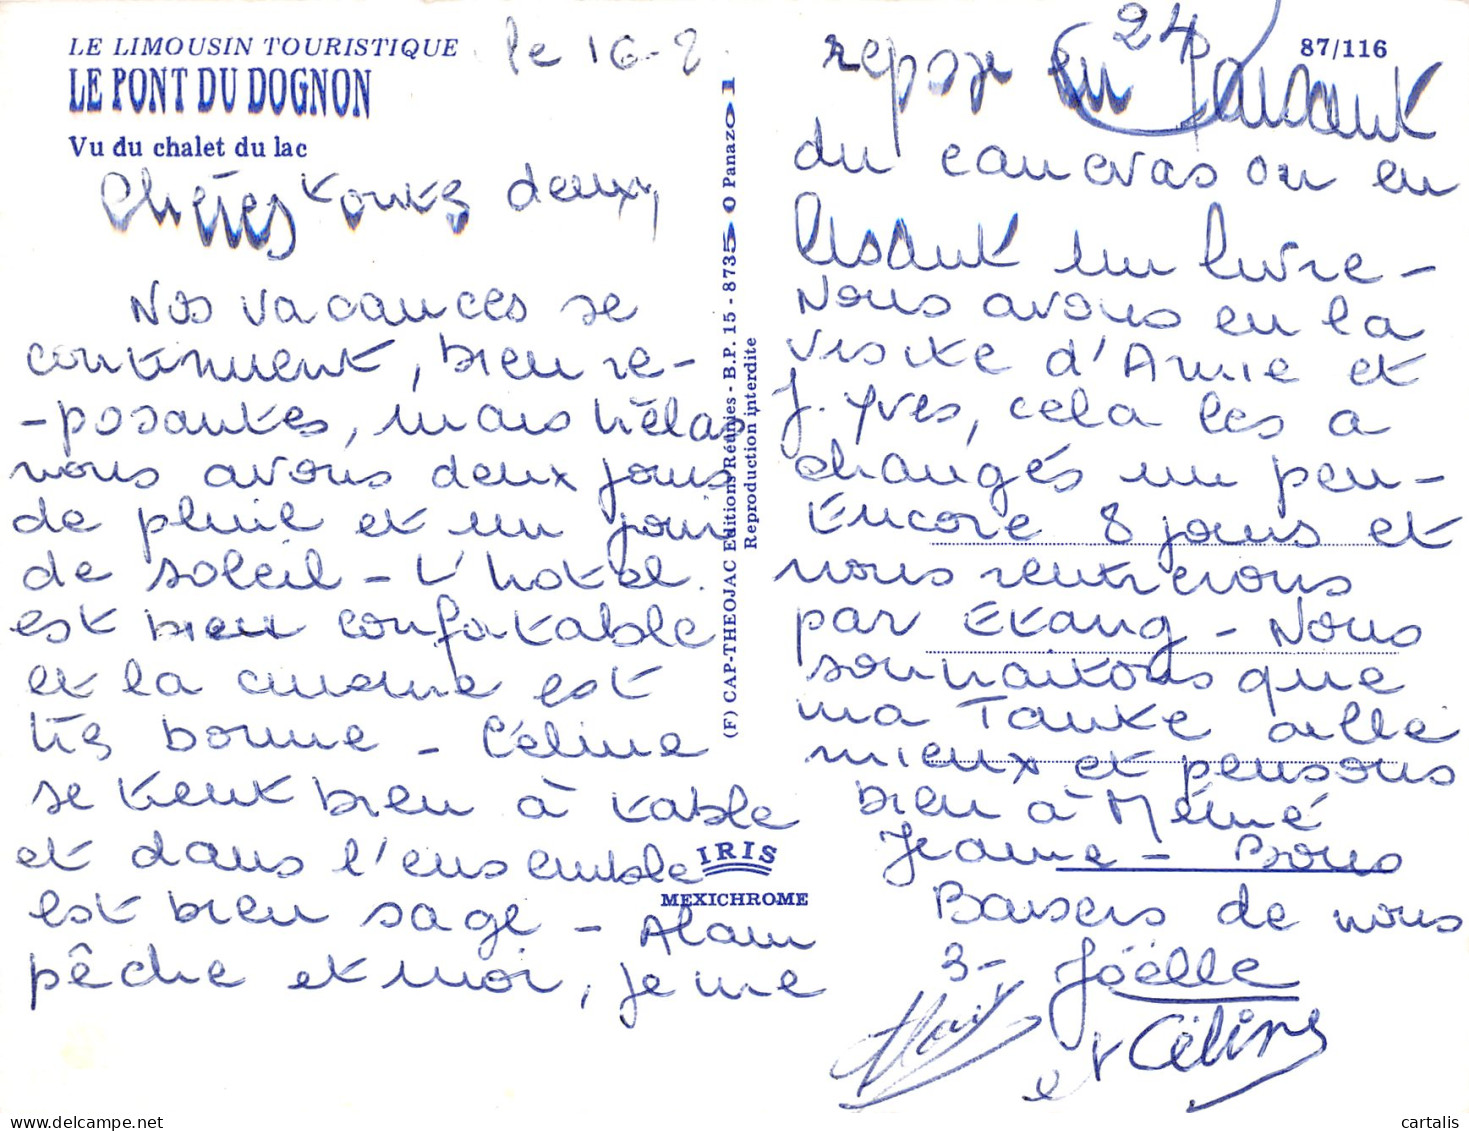 LE LIMOUSIN TOURISTIQUE
LE PONT DU DOGNON
Vu du chalet du lac
le 16-8
Chères toutes deux,
Nos vacances se
continuent, bien re-
-posantes, mais hélas
nous avons deux jours
de pluie et un jour
de soleil - L'hotel
est bien confortable
et la cuisine est
très bonne - Céline
se tient bien à table
et dans l'ensemble
est bien sage - Alain
pêche et moi, je me
(F) CAP-THEOJAC Editions Réunies - B.P. 15 - 87350 Panazol
Reproduction interdite
IRIS
MEXICHROME
87/116
24
repose en faisant
du canevas ou en
lisant un livre -
Nous avons eu la
visite d'Annie et
J. Yves, cela les a
changés un peu -
Encore 8 jours et
nous rentrerons
par Etang - Nous
souhaitons que
ma Tante aille
mieux et pensons
bien à Mémé
Jeanne - Bons
Baisers de nous
3 - Joëlle
Alain
et Céline
cartalis
© delcampe.net